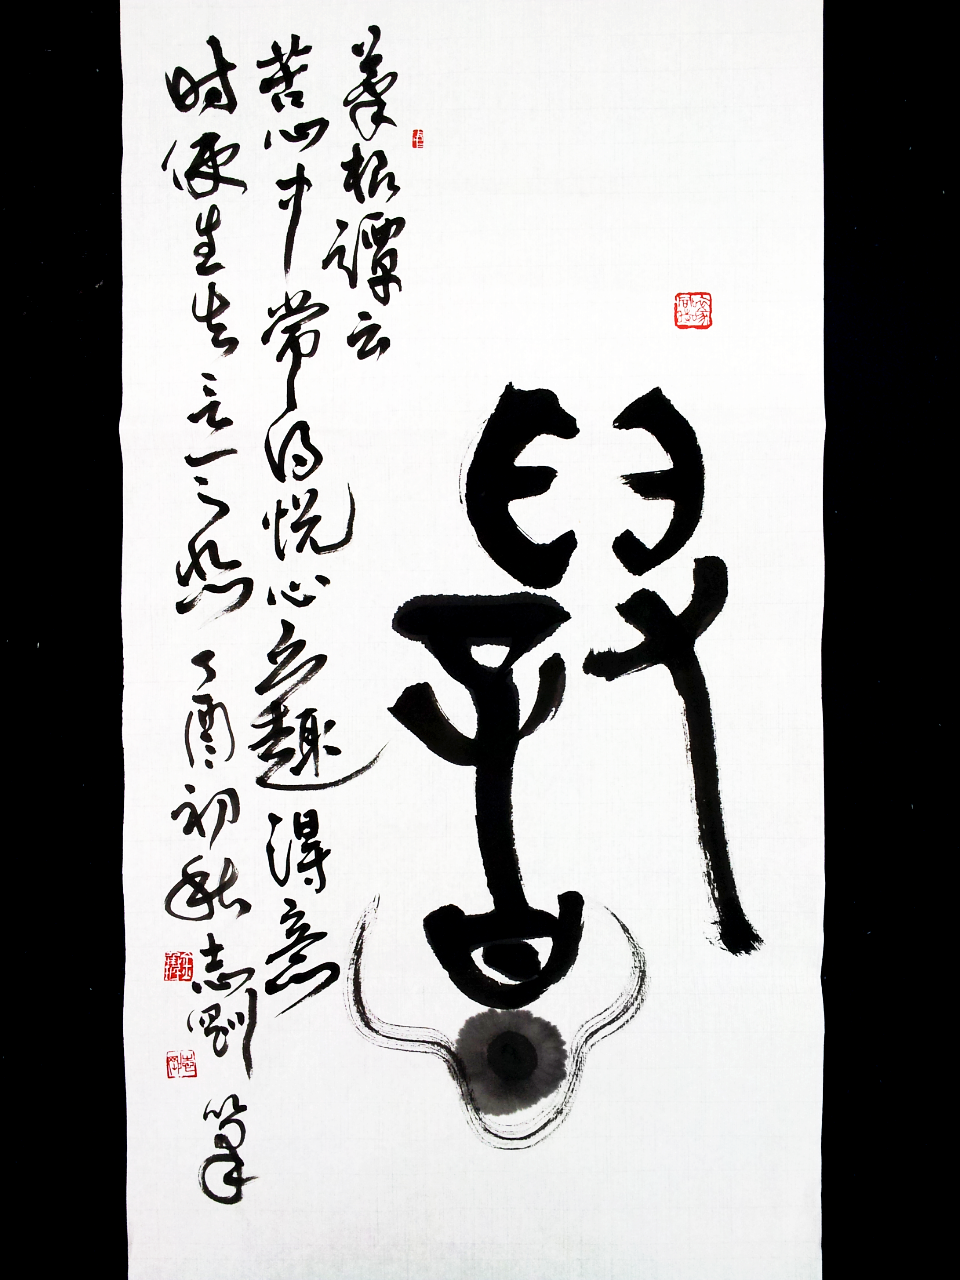 菜根譚云
苦心中常得悦心之趣得意
时便生失意之悲 丁酉初秋 志剛 筆